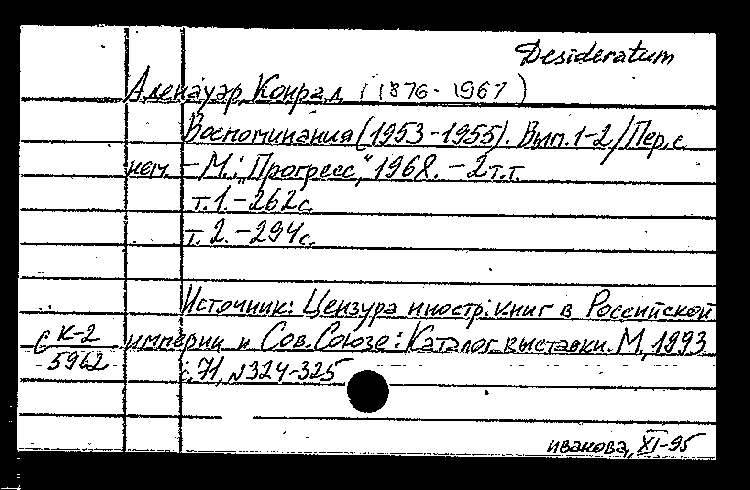 Desideratum
Аденауэр, Конрад (1876-1967)
Воспоминания (1953-1955). Вып. 1-2 / Пер. с
нем. - М.: "Прогресс", 1968. - 2 т.т.
т. 1. - 262 с.
т. 2. - 294 с.
Источник: Цензура иностр. книг в Российской
империи и Сов. Союзе: Каталог выставки. М., 1993
с. 71, №324-325
С К-2
5962
иванова, XI-95